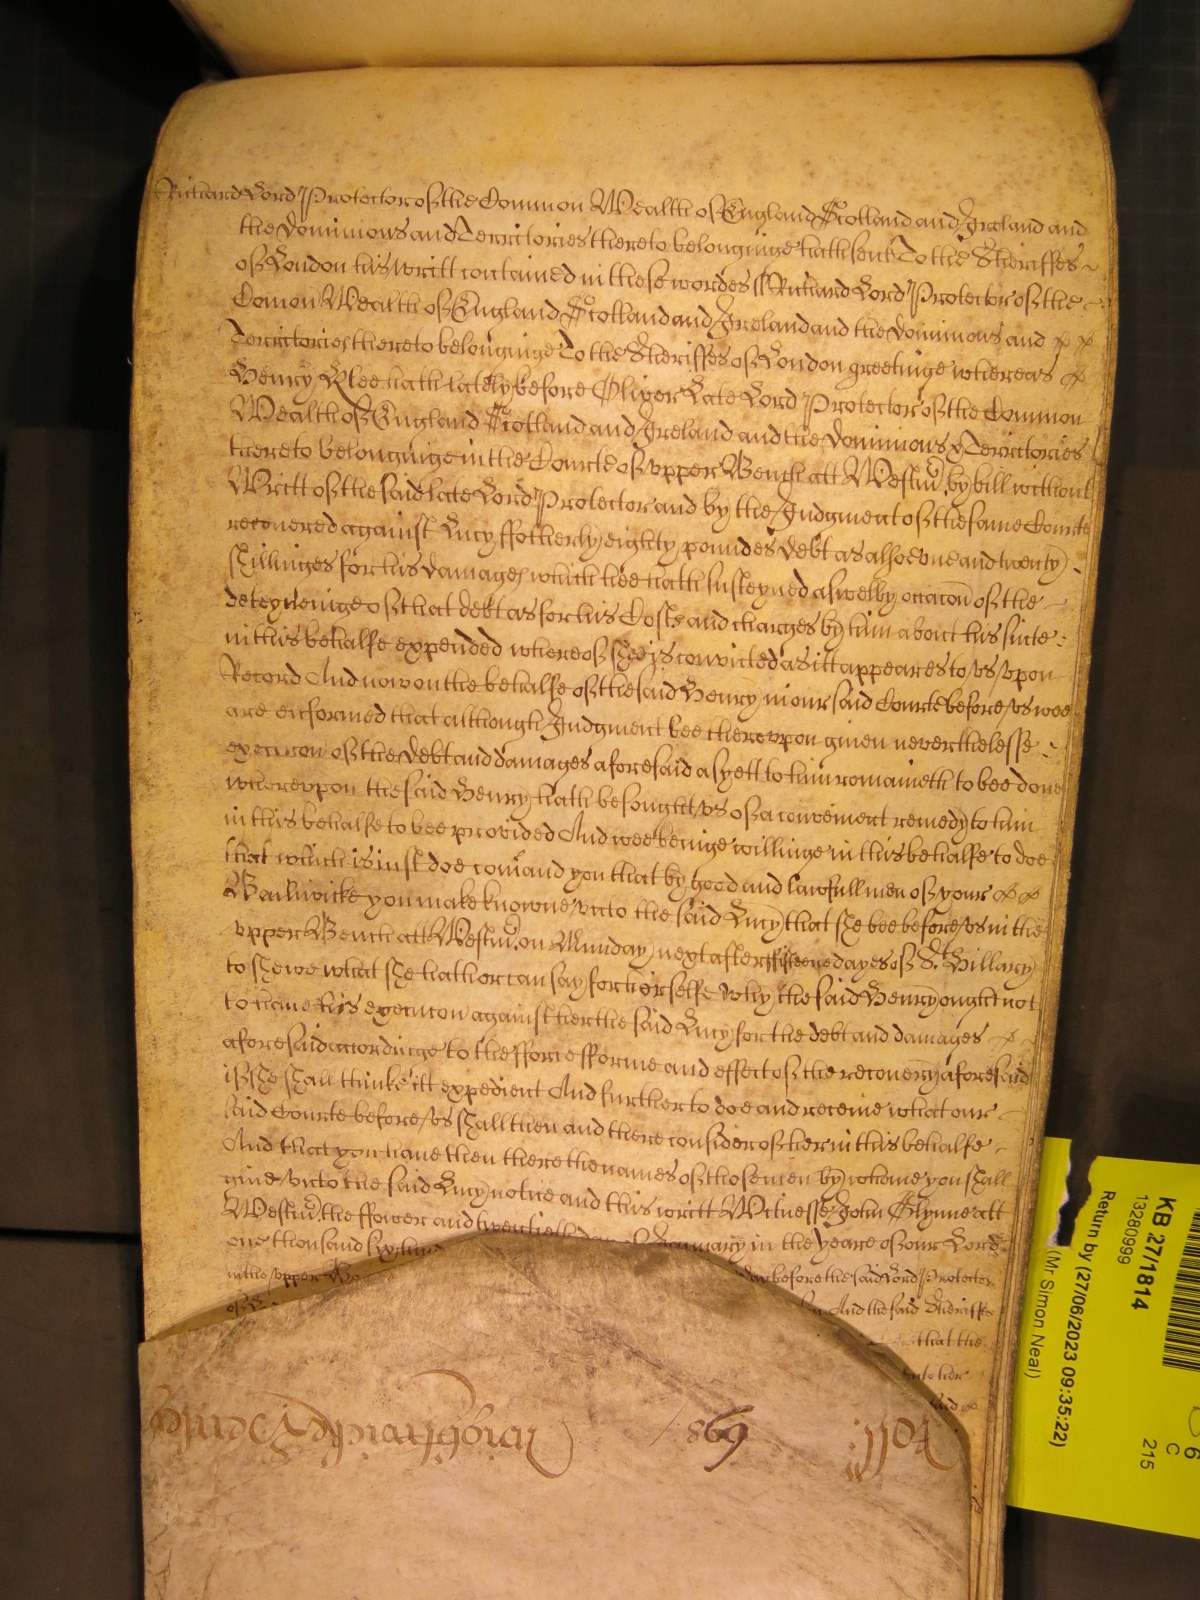 Richard Lord Protector of the Common Wealth of England Scotland and Ireland and
the Dominions and Territories thereto belonginge hath sent To the Sheriffes
of London his writt contained in these wordes ss Richard Lord Protector of the
Comon Wealth of England Scotland and Ireland and the Dominions and
Territories thereto belonginge To the Sheriffes of London greetinge whereas
Henry Blee hath lately before Oliver Late Lord Protector of the Common
Wealth of England Scotland and Ireland and the Dominions & Territories
thereto belonginge in the Courte of upper Bench att Westm̃ by bill without
Writt of the said late Lord Protector and by the Judgment of the same Courte
recovered against Lucy ffotherly eighty poundes debt as alsoe one and twenty
shillinges for his damages which hee hath susteyned aswell by occac̃on of the
deteyneinge of that debt as for his Costs and charges by him about his suite
in this behalfe expended whereof shee is convicted as itt appeares to us upon
Record And now on the behalfe of the said Henry in our said Courte before us wee
are enformed that although Judgment bee thereupon given neverthelesse
execucon of the Debt and damages aforesaid as yett to him remaineth to bee done
whereupon the said Henry hath besought us of a convenient remedy to him
in this behalfe to bee provided And wee beinge willinge in this behalfe to doe
that which is just doe com̃and you that by good and lawfull men of your
Bailiwicke you make knowne unto the said Lucy that she bee before us in the
upper Bench att Westm̃ on Munday next after fifteene dayes of St. Hillary
to shewe what she hath or can say for herselfe why the said Henry ought not
to have his execucon against her the said Lucy for the debt and damages
aforesaid accordinge to the fforce fforme and effect of the recovery aforesaid
if she shall thinke itt expedient And further to doe and receive what our
said Courte before us shall then and there consider of her in this behalfe
And that you have then there the names of those men by whome you shall
give unto the said Lucy notice and this writt Witnesse John Glynne att
Westm̃ the ffower and twentieth day of January in the yeare of our Lord
one thousand six hund
in the upper day before the said Lord Protector
And the said Sheriffes
that the
unto her
said
Roll
869
Wrightwicke
KB 27/1814
13280999
Return by (27/06/2023 09:35:22)
(Mr Simon Neal)
6
C
215